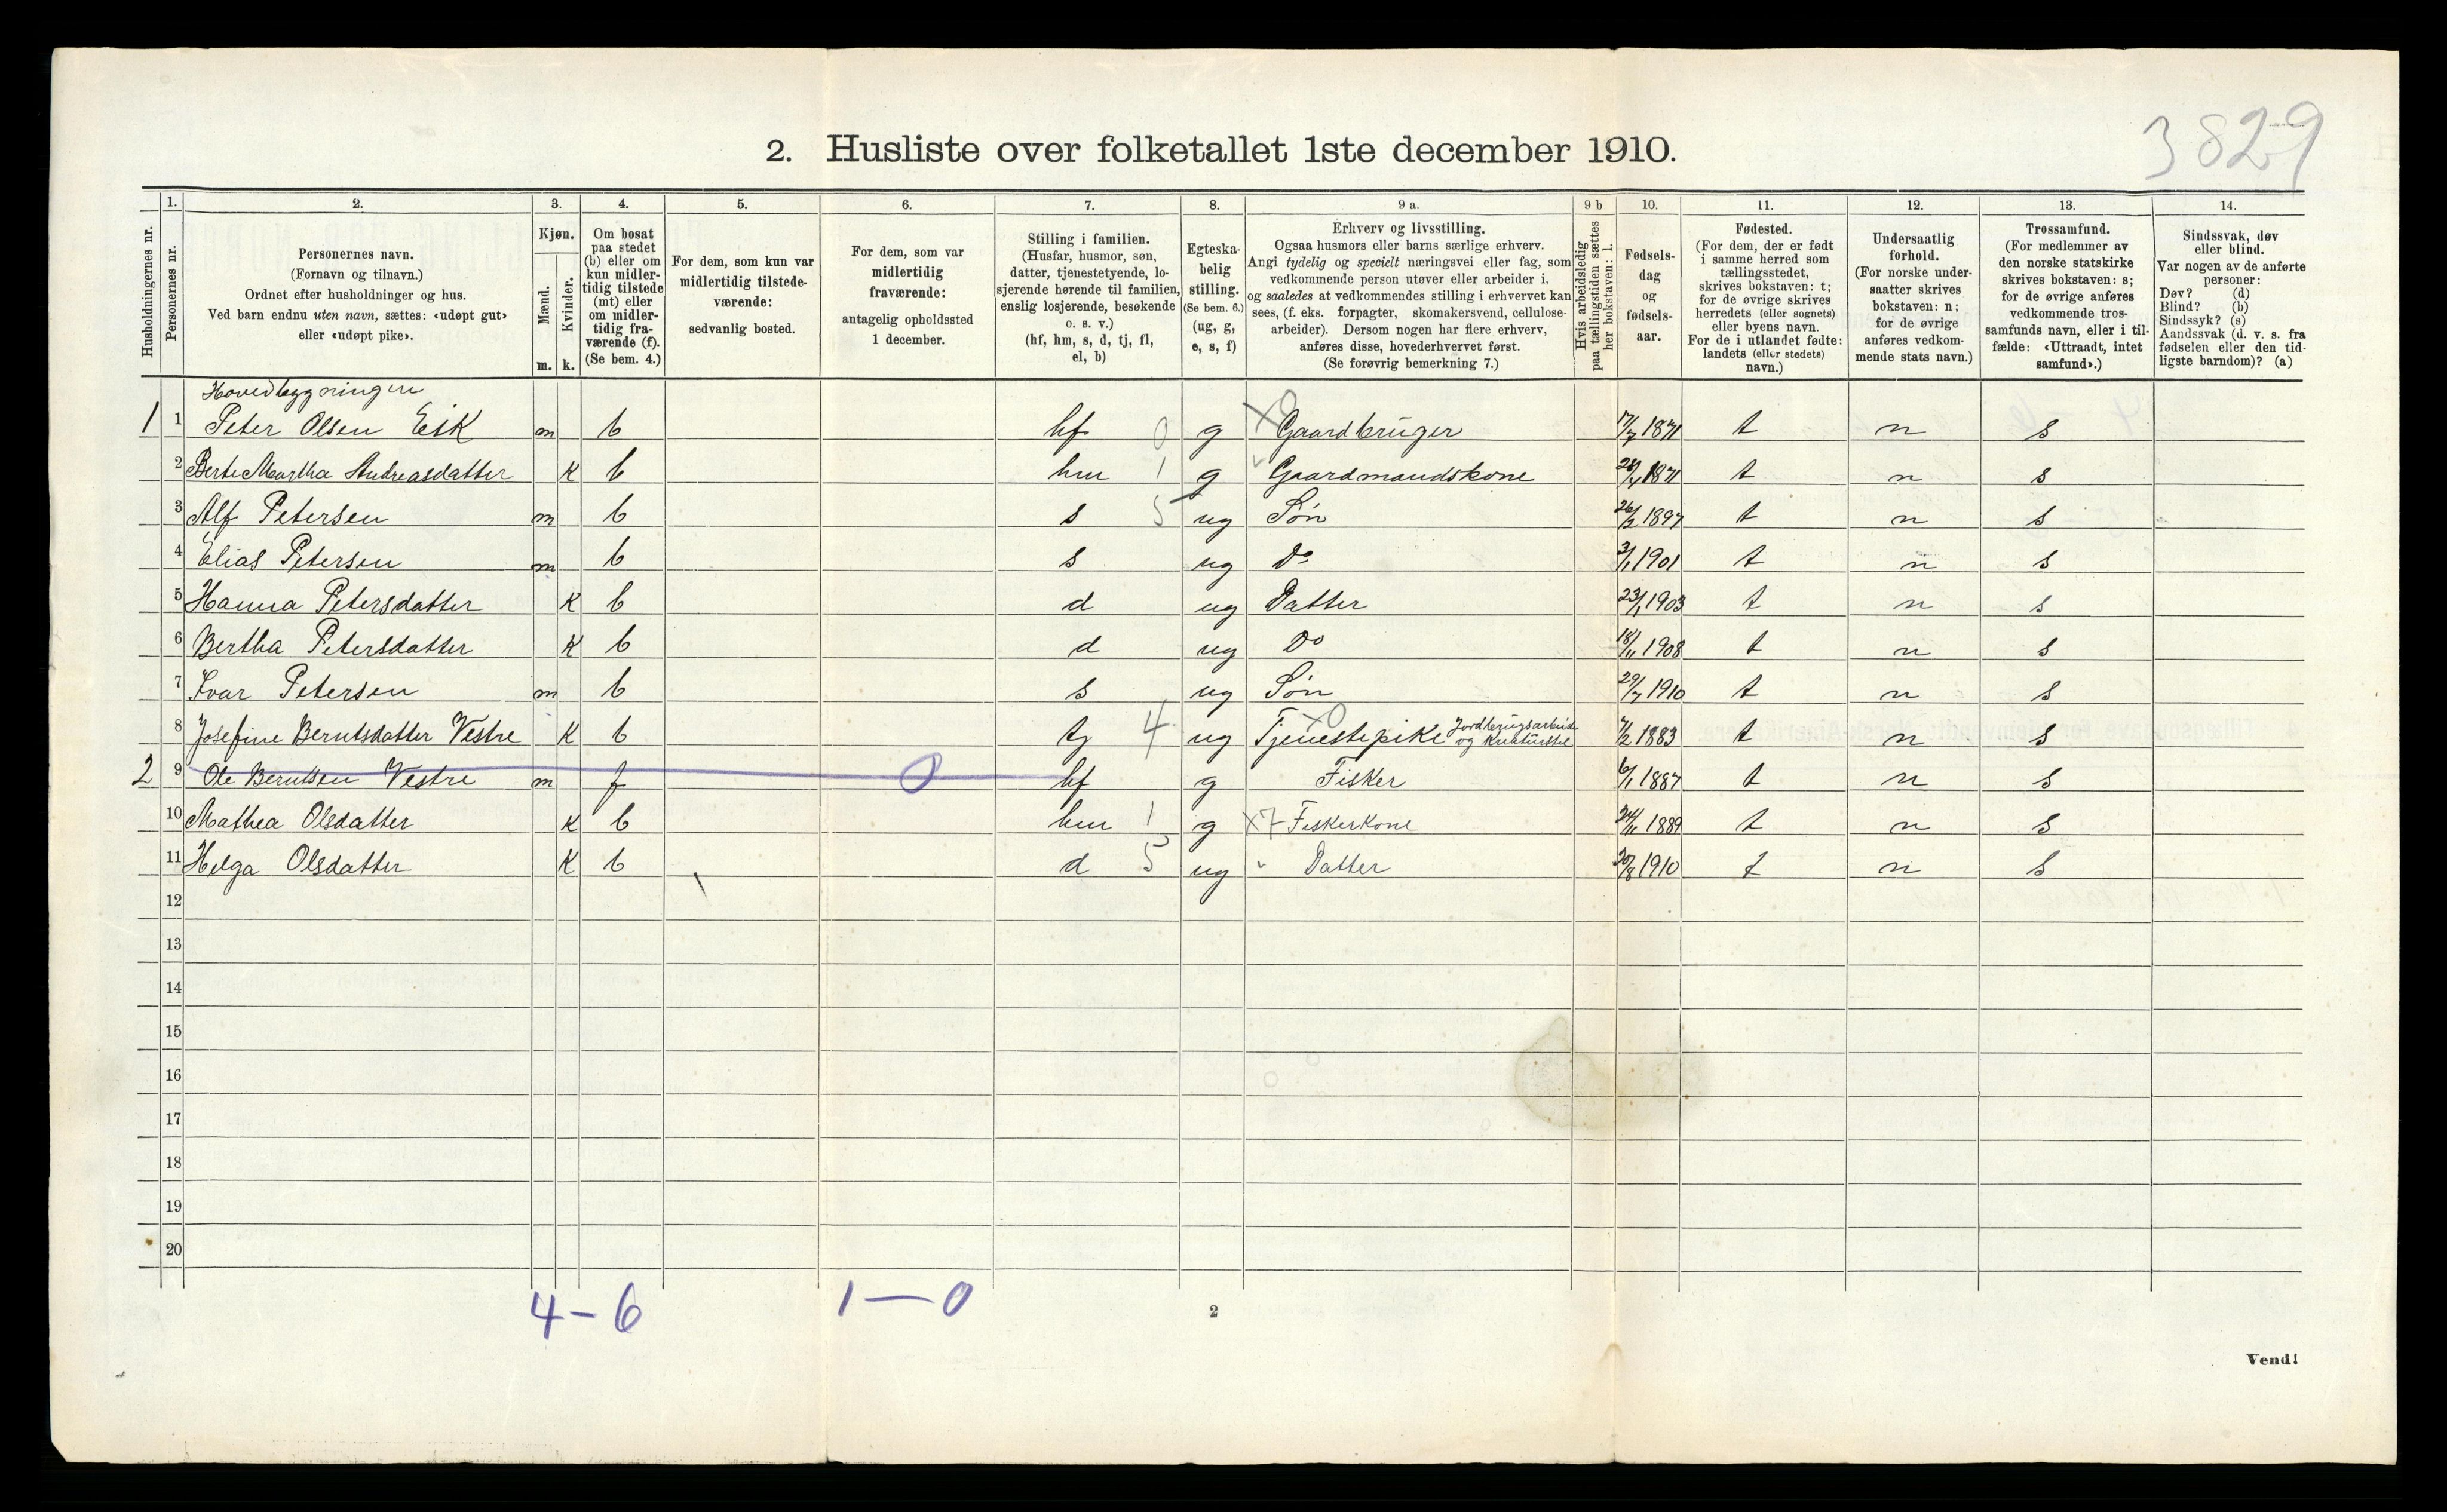 3829
2. Husliste over folketallet 1ste december 1910.
Husholdningernes nr.
1. Personernes nr.
2. Personernes navn.
(Fornavn og tilnavn.)
Ordnet efter husholdninger og hus.
Ved barn endnu uten navn, sættes: «udøpt gut»
eller «udøpt pike».
3. Kjøn.
Mænd. m.
Kvinder. k.
4. Om bosat
paa stedet
(b) eller om
kun midler-
tidig tilstede
(mt) eller
om midler-
tidig fra-
værende (f).
(Se bem. 4.)
5. For dem, som kun var
midlertidig tilstede-
værende:
sedvanlig bosted.
6. For dem, som var
midlertidig
fraværende:
antagelig opholdssted
1 december.
7. Stilling i familien.
(Husfar, husmor, søn,
datter, tjenestetyende, lo-
sjerende hørende til familien,
enslig losjerende, besøkende
o. s. v.)
(hf, hm, s, d, tj, fl,
el, b)
8. Egteska-
belig
stilling.
(Se bem. 6.)
(ug, g,
e, s, f)
9 a. Erhverv og livsstilling.
Ogsaa husmors eller barns særlige erhverv.
Angi tydelig og specielt næringsvei eller fag, som
vedkommende person utøver eller arbeider i,
og saaledes at vedkommendes stilling i erhvervet kan
sees, (f. eks. forpagter, skomakersvend, cellulose-
arbeider). Dersom nogen har flere erhverv,
anføres disse, hovederhvervet først.
(Se forøvrig bemerkning 7.)
9 b Hvis arbeidsledig
paa tællingstiden sættes
her bokstaven: l.
10. Fødsels-
dag
og
fødsels-
aar.
11. Fødested.
(For dem, der er født
i samme herred som
tællingsstedet,
skrives bokstaven: t;
for de øvrige skrives
herredets (eller sognets)
eller byens navn.
For de i utlandet fødte:
landets (eller stedets)
navn.)
12. Undersaatlig
forhold.
(For norske under-
saatter skrives
bokstaven: n;
for de øvrige
anføres vedkom-
mende stats navn.)
13. Trossamfund.
(For medlemmer av
den norske statskirke
skrives bokstaven: s;
for de øvrige anføres
vedkommende tros-
samfunds navn, eller i til-
fælde: «Uttraadt, intet
samfund».)
14. Sindssvak, døv
eller blind.
Var nogen av de anførte
personer:
Døv? (d)
Blind? (b)
Sindssyk? (s)
Aandssvak (d. v. s. fra
fødselen eller den tid-
ligste barndom)? (a)
Hovedbygningen
1 1 Peter Olsen Eik m b hf 0 g x0 Gaardbruger 17/7 1871 t n s
2 Berte Martha Andreasdatter K b hm 1 g Gaardmandskone 1871 t n s
3 Alf Petersen m b s 5 ug Søn 26/2 1897 t n s
4 Elias Petersen m b s ug Do 3/1 1901 t n s
5 Hanna Petersdatter K b d ug Datter 23/1 1903 t n s
6 Bertha Petersdatter K b d ug Do 18/11 1908 t n s
7 Ivar Petersen m b s ug Søn 29/7 1910 t n s
8 Josefine Berntsdatter Vestre K b tj 4 ug x0 Tjenestepike Jordbrugsarbeide og Kreaturstel 7/2 1883 t n s
2 9 Ole Berntsen Vestre m f 0 hf g Fisker 6/1 1887 t n s
10 Mathea Olsdatter K b hm 1 g x7 Fiskerkone 24/11 1889 t n s
11 Helga Olsdatter K b d 5 ug " Datter 20/8 1910 t n s
12
13
14
15
16
17
18
19
20
4 – 6 1 – 0
2
Vend!